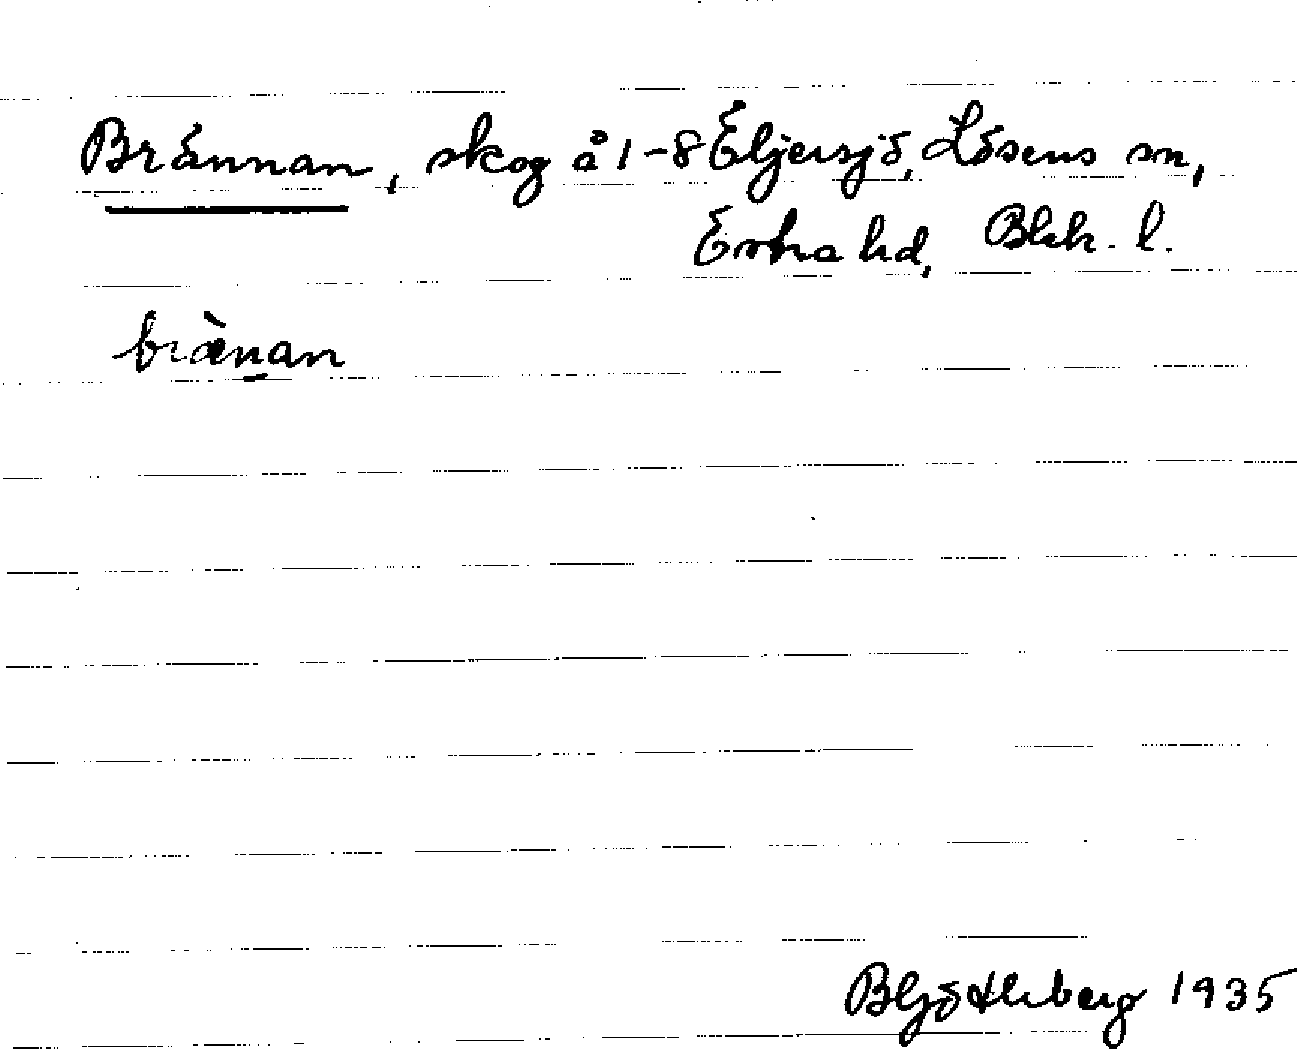 Brännan, skog å 1-8 Eljersjö, Lösens sn,
Östra hd, Blek. l.
brànan
1935